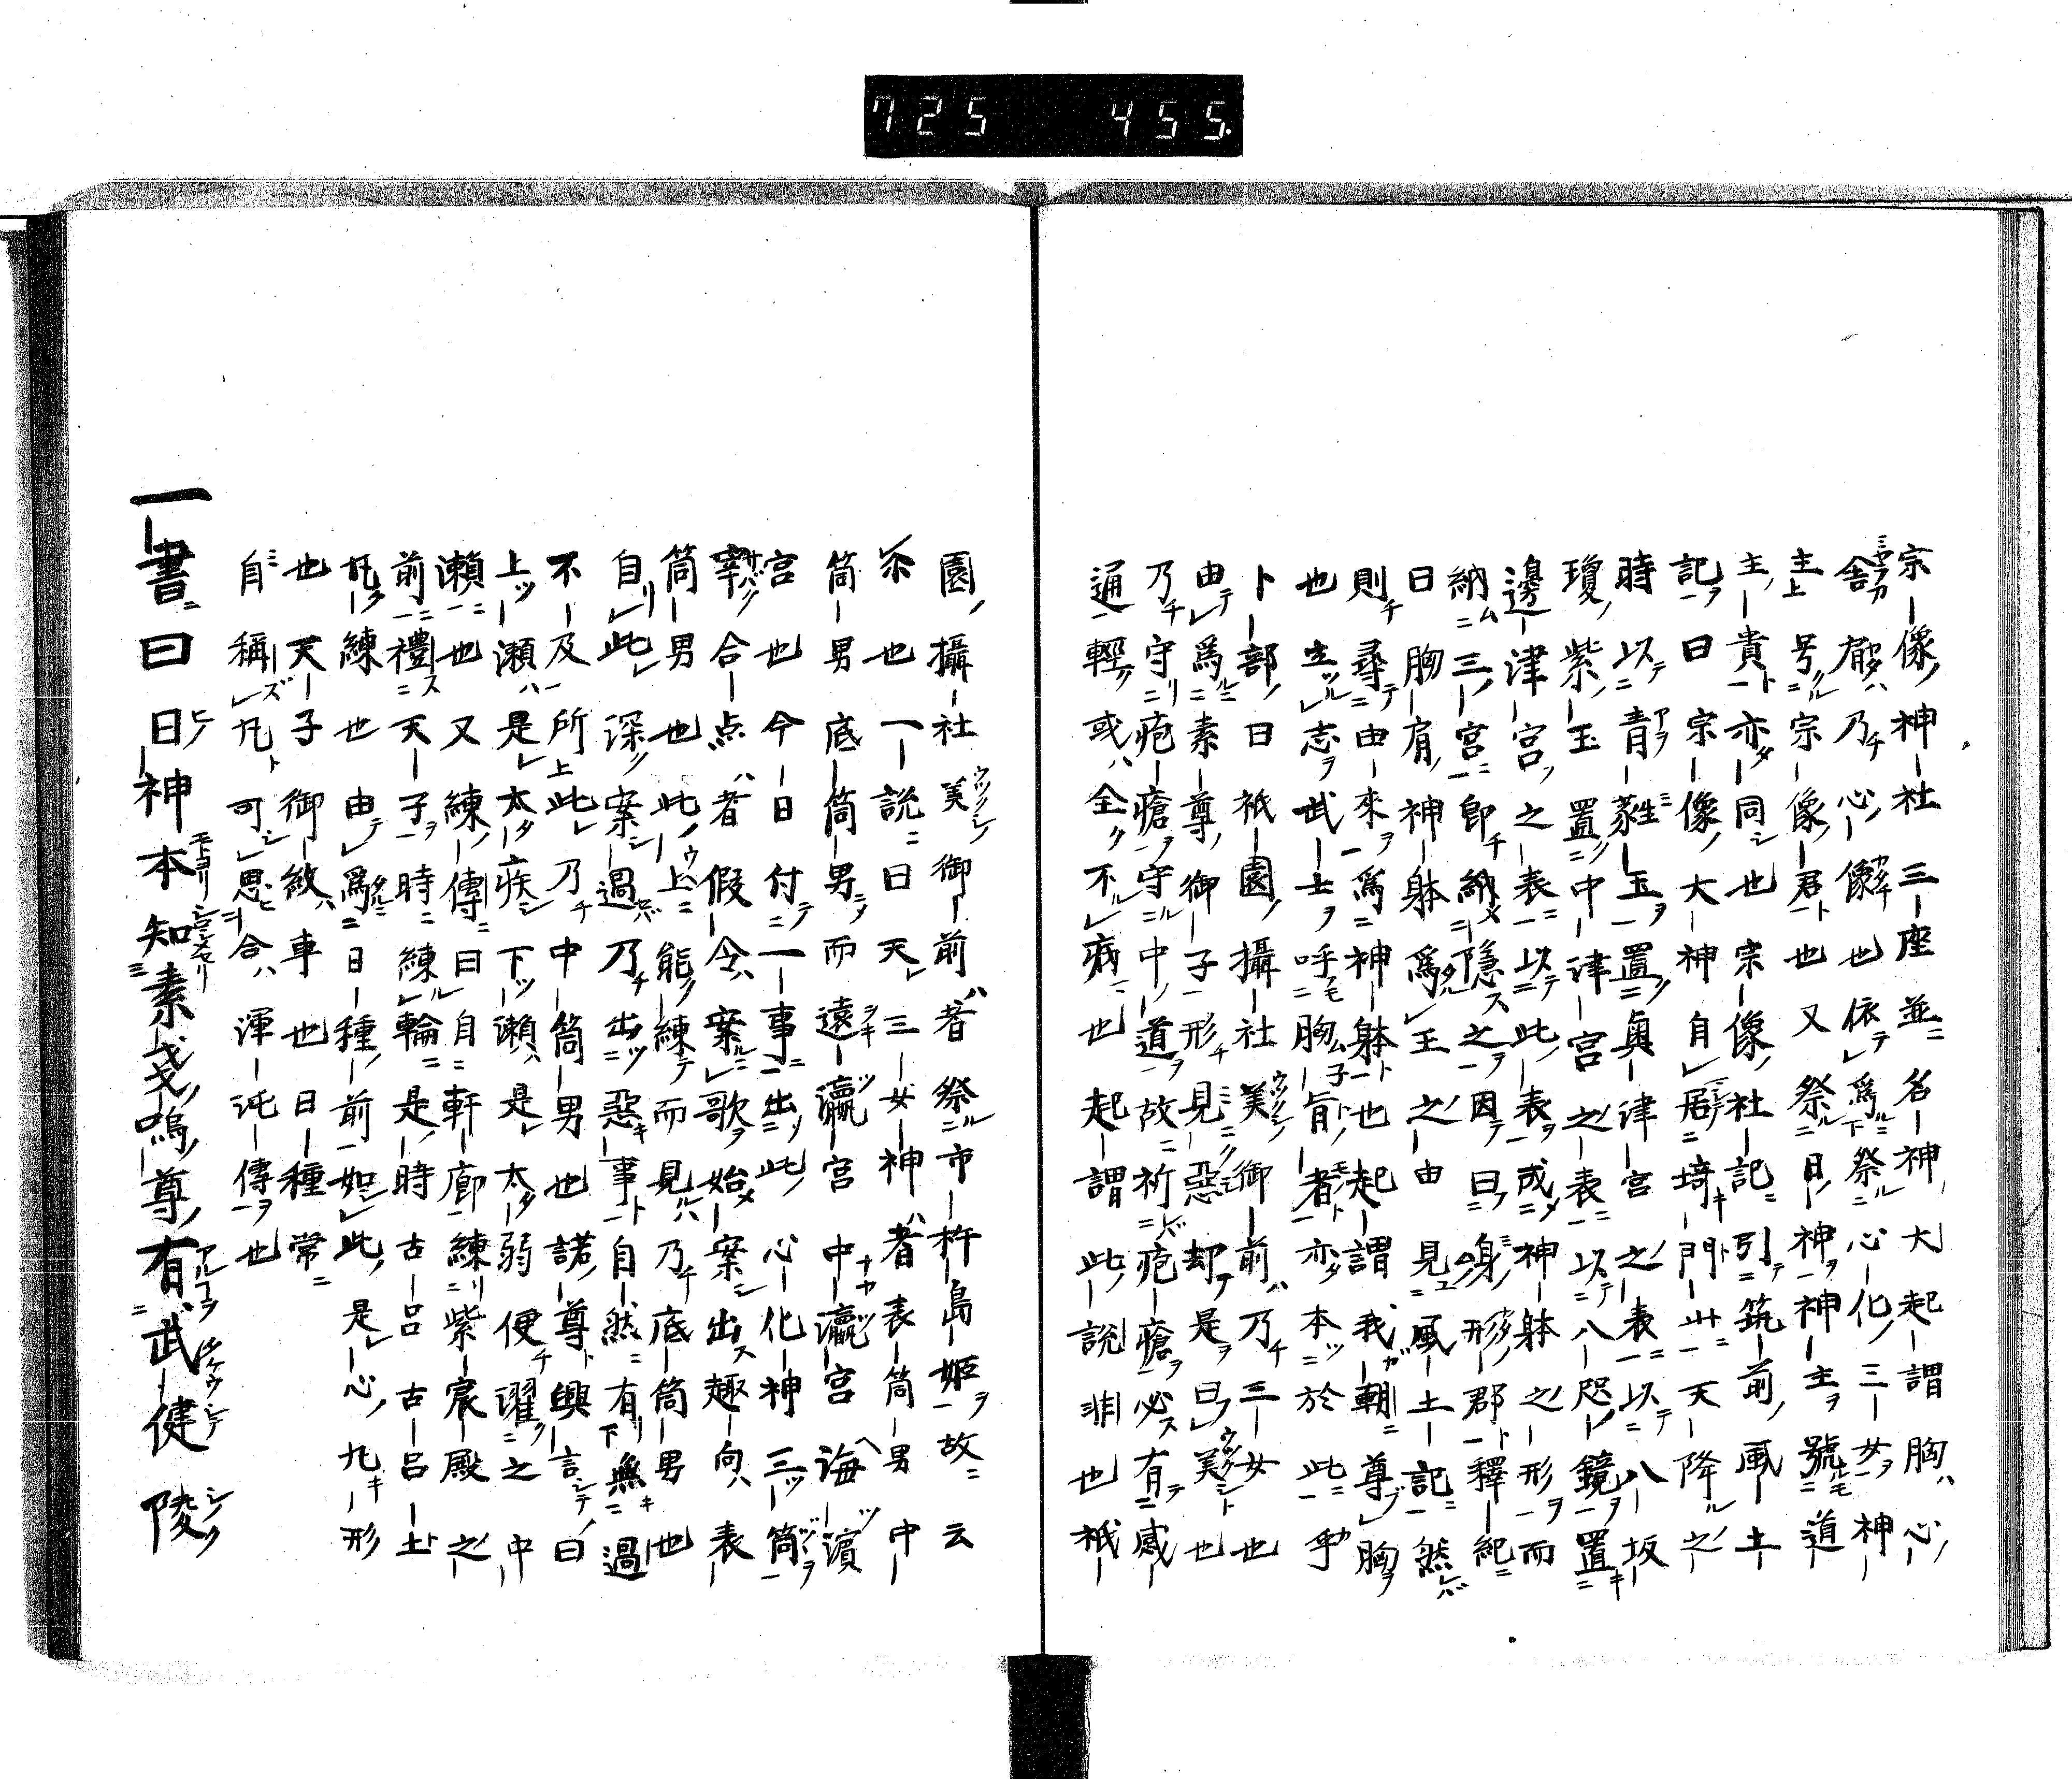 725 455
宗像神社三座並名神大起謂胸心
舎厳乃心像也依為祭心化三女神
主号宗像君也又祭日神神主號道
主貴亦同也宗像社記引筑前風土
記曰宗像大神自居埼門山天降之
時以青蕤玉置奥津宮之表以八坂
瓊紫玉置中津宮之表以八咫鏡置
邊津宮之表以此表成神躰之形而
納三宮即納隠之因曰身形郡釋紀
曰胸肩神躰為玉之由見風土記然
則尋由来為神躰也起謂我朝尊胸
也立志武士呼胸肩者亦本於此乎
卜部曰祇園攝社美御前乃三女也
由為素尊御子形見惡却是曰美也
乃守疱瘡守中道故祈疱瘡必有感
通輕或全不病也起謂此説非也祇
園攝社美御前者祭市杵島姫故云
尓也一説曰天三女神者表筒男中
筒男底筒男而遠瀛宮中瀛宮海濱
宮也今日付一事出此心化神三筒
宰合点者假令案歌始案出趣向表
筒男也此上能練而見乃底筒男也
自此深案過乃出惡事自然有無過
不及所此乃中筒男也諾尊興言曰
上瀬是太疾下瀬是太弱便濯之中
瀬也又練傳曰自軒廊練紫宸殿之
前禮天子時練輪是時古呂古呂土
凡練也由為日種前如此是心九形
也天子御紋車也日種常
自稱凡可思合渾沌傳也
一書曰日神本知素戔嗚尊有武健陵